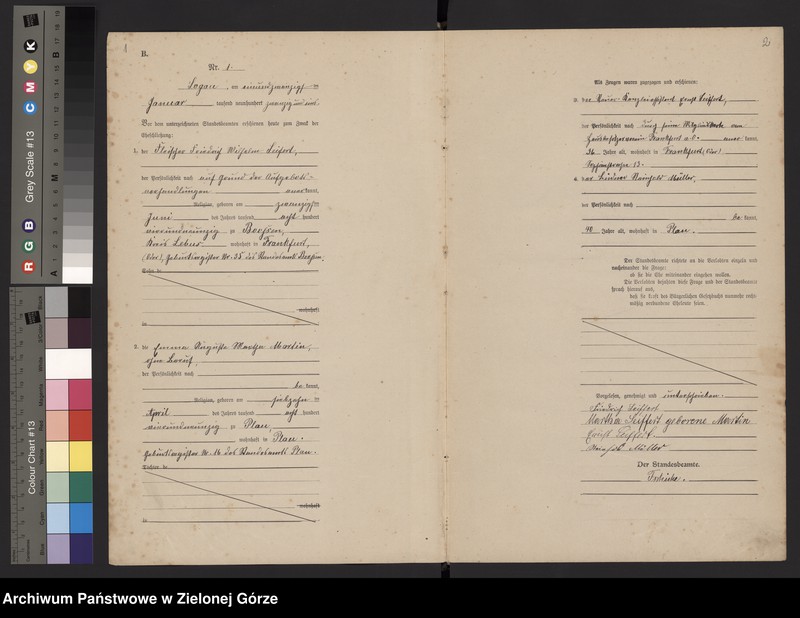 B.
Nr. 1.
Logau, am einundzwanzigsten
Januar tausend neunhundert zwanzig und
Vor dem unterzeichneten Standesbeamten erschienen heute zum Zweck der
Eheschließung:
1. der Fleischer Friedrich Wilhelm Seifert,
der Persönlichkeit nach auf Grund der Aufgebots-
verhandlungen anerkannt,
Religion, geboren am zwanzigsten
Juni des Jahres tausend acht hundert
vierundneunzig zu
Kreis Lebus wohnhaft in Frankfurt,
(Oder), Geburtsregister Nr. 35 des Standesamts
Sohn de
wohnhaft
in
2. die Emma Auguste Martha Martin,
ohne Beruf,
der Persönlichkeit nach
be kannt,
Religion, geboren am siebzehnten
April des Jahres tausend acht hundert
vierundneunzig zu Plau,
wohnhaft in Plau.
Geburtsregister Nr. 16 des Standesamts Plau.
Tochter de
wohnhaft
in
2
Als Zeugen waren zugezogen und erschienen:
3. der Ernst Seifert,
der Persönlichkeit nach durch seine Mitgliedskarte
Frankfurt a.O. aner kannt,
36 Jahre alt, wohnhaft in Frankfurt (Oder)
13.
4. der Reinhold Müller,
der Persönlichkeit nach
be kannt,
40 Jahre alt, wohnhaft in Plau.
Der Standesbeamte richtete an die Verlobten einzeln und
nacheinander die Frage:
ob sie die Ehe miteinander eingehen wollen.
Die Verlobten bejahten diese Frage und der Standesbeamte
sprach hierauf aus,
daß sie kraft des Bürgerlichen Gesetzbuchs nunmehr recht-
mäßig verbundene Eheleute seien.
Vorgelesen, genehmigt und unterschrieben.
Friedrich Seifert
Martha Seifert geborene Martin
Ernst Seifert.
Müller
Der Standesbeamte.
Grey Scale #13
Colour Chart #13
R G B
C M Y K
A M B
Archiwum Państwowe w Zielonej Górze